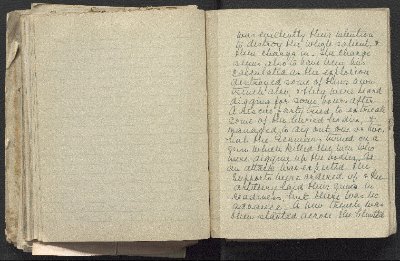 was evidently their intention
to destroy the whole salient, &
then charge in. The charge
seems also to have been
calculated as the explosion
destroyed some of their own
trench also, & they were heard
digging for some hours after
A rescue party tried to extricate
some of the buried bodies, &
managed to dig out one or two,
but the Germans turned on a
gun which killed the men who
were digging up the bodies. As
an attack was expected the
supports were ordered up & the
artillery laid their guns in
readiness, but there was no
advance. A new trench was
then started across the